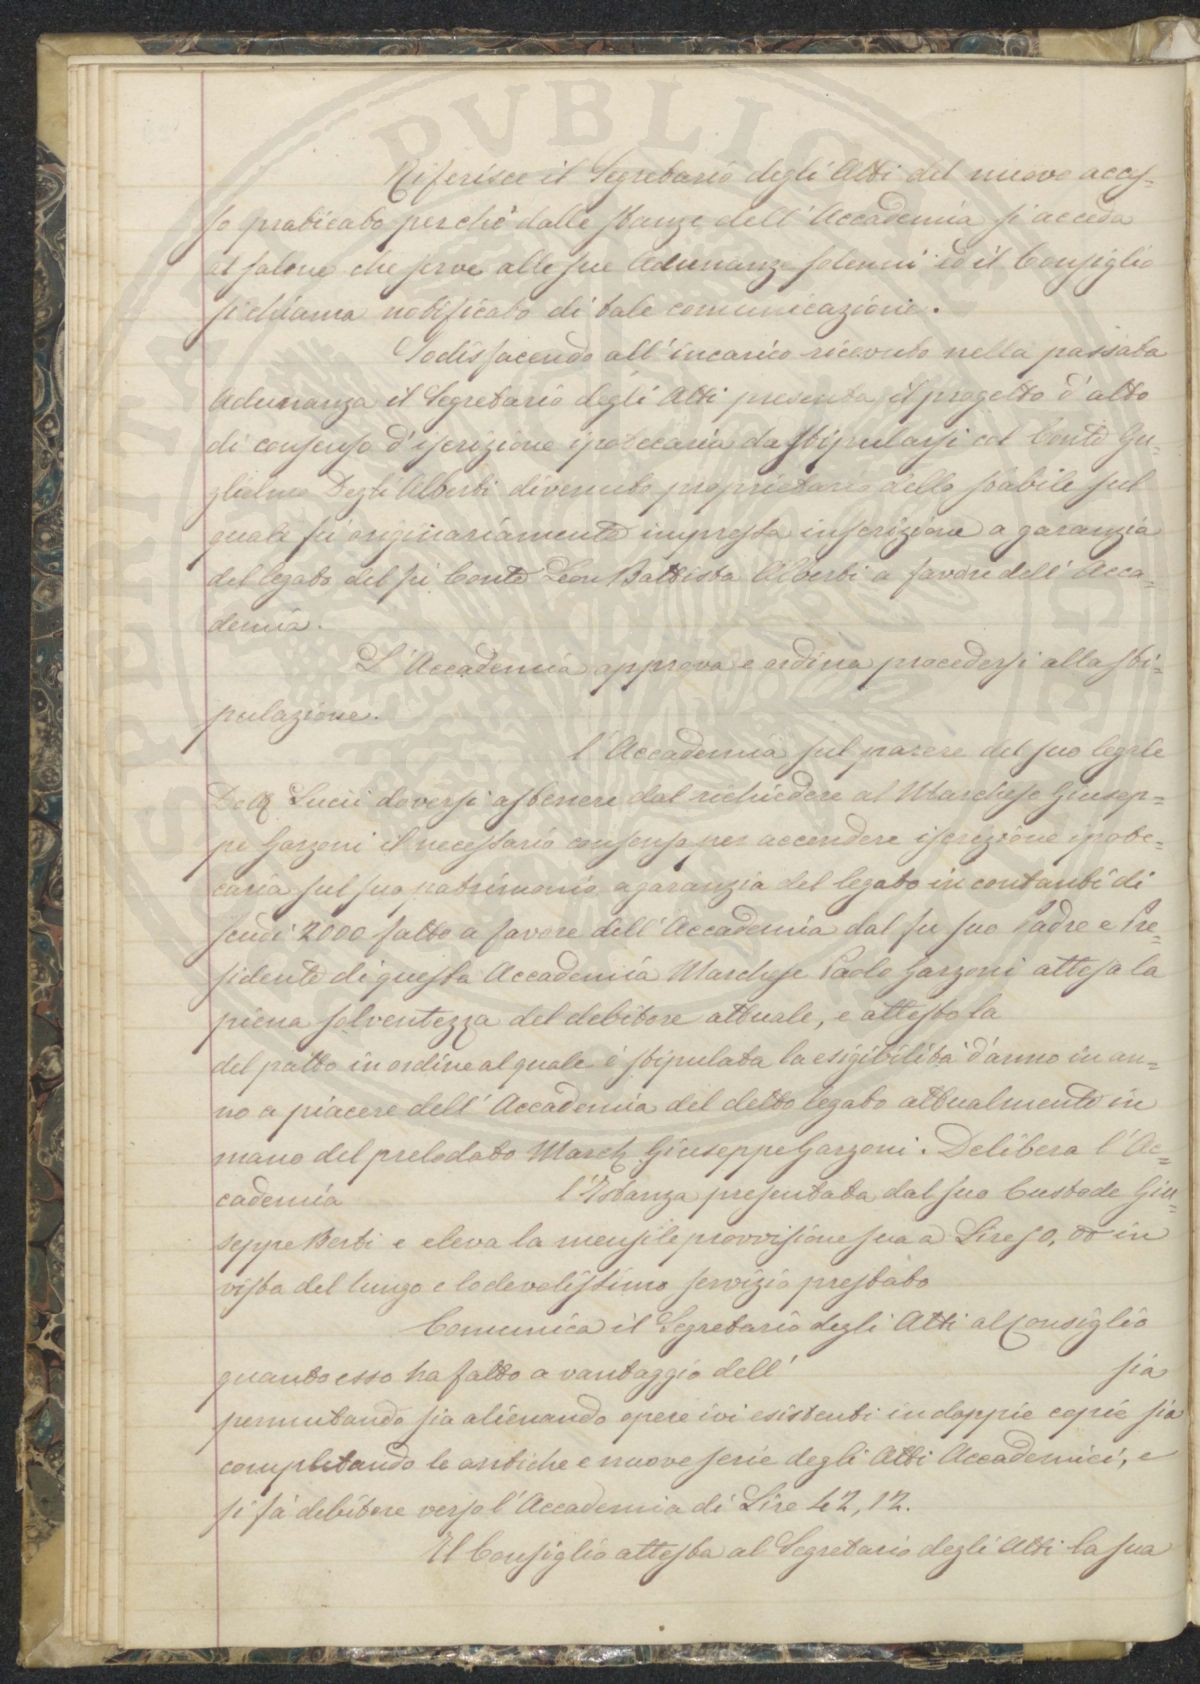 Riferisce il Segretario degli Atti del nuovo acces=
so praticato perchè dalle stanze dell'Accademia si acceda
al salone che serve alle sue Adunanze solenni ed il Consiglio
si chiama notificato di tale comunicazione.
Sodisfacendo all'incarico ricevuto nella passata
Adunanza il Segretario degli Atti presenta il progetto d'atto
di consenso d'iscrizione ipotecaria da stipularsi col Conte Gu=
glielmo Degli Alberti divenuto proprietario dello stabile sul
quale fù originariamente impressa inscrizione a garanzia
del legato del fù Conte Leon Battista Alberti a favore dell'Acca=
demia.
L'Accademia approva e ordina procedersi alla sti=
pulazione.
l'Accademia sul parere del suo legale
Lucii doversi astenere dal richiedere al Marchese Giusep=
pe Garzoni il necessario consenso per accendere iscrezione ipote=
caria sul suo patrimonio a garanzia del legato in contanti di
scudi 2000 fatto a favore dell'Accademia dal fu suo Padre e Pre=
sidente di questa Accademia Marchese Paolo Garzoni attesa la
piena solventezza del debitore attuale, e attesto la
del patto in ordine al quale è stipulata la esigibilità d'anno in an=
no a piacere dell'Accademia del detto legato attualmente in
mano del prelodato March Giuseppe Garzoni. Delibera l'Ac=
cademia l'Istanza presentata dal suo Custode Giu=
seppe Berti e eleva la mensile provvisione sua a Lire 50, 00 in
vista del lungo e lodevolissimo servizio prestato
Comunica il Segretario degli Atti al Consiglio
quanto esso ha fatto a vantaggio dell' sia
permutando sia alienando opere ivi esistenti in doppie copie sia
completando le antiche e nuove serie degli Atti Accademici, e
si fà debitore verso l'Accademia di Lire 42, 12.
Il Consiglio attesta al Segretario degli Atti la sua